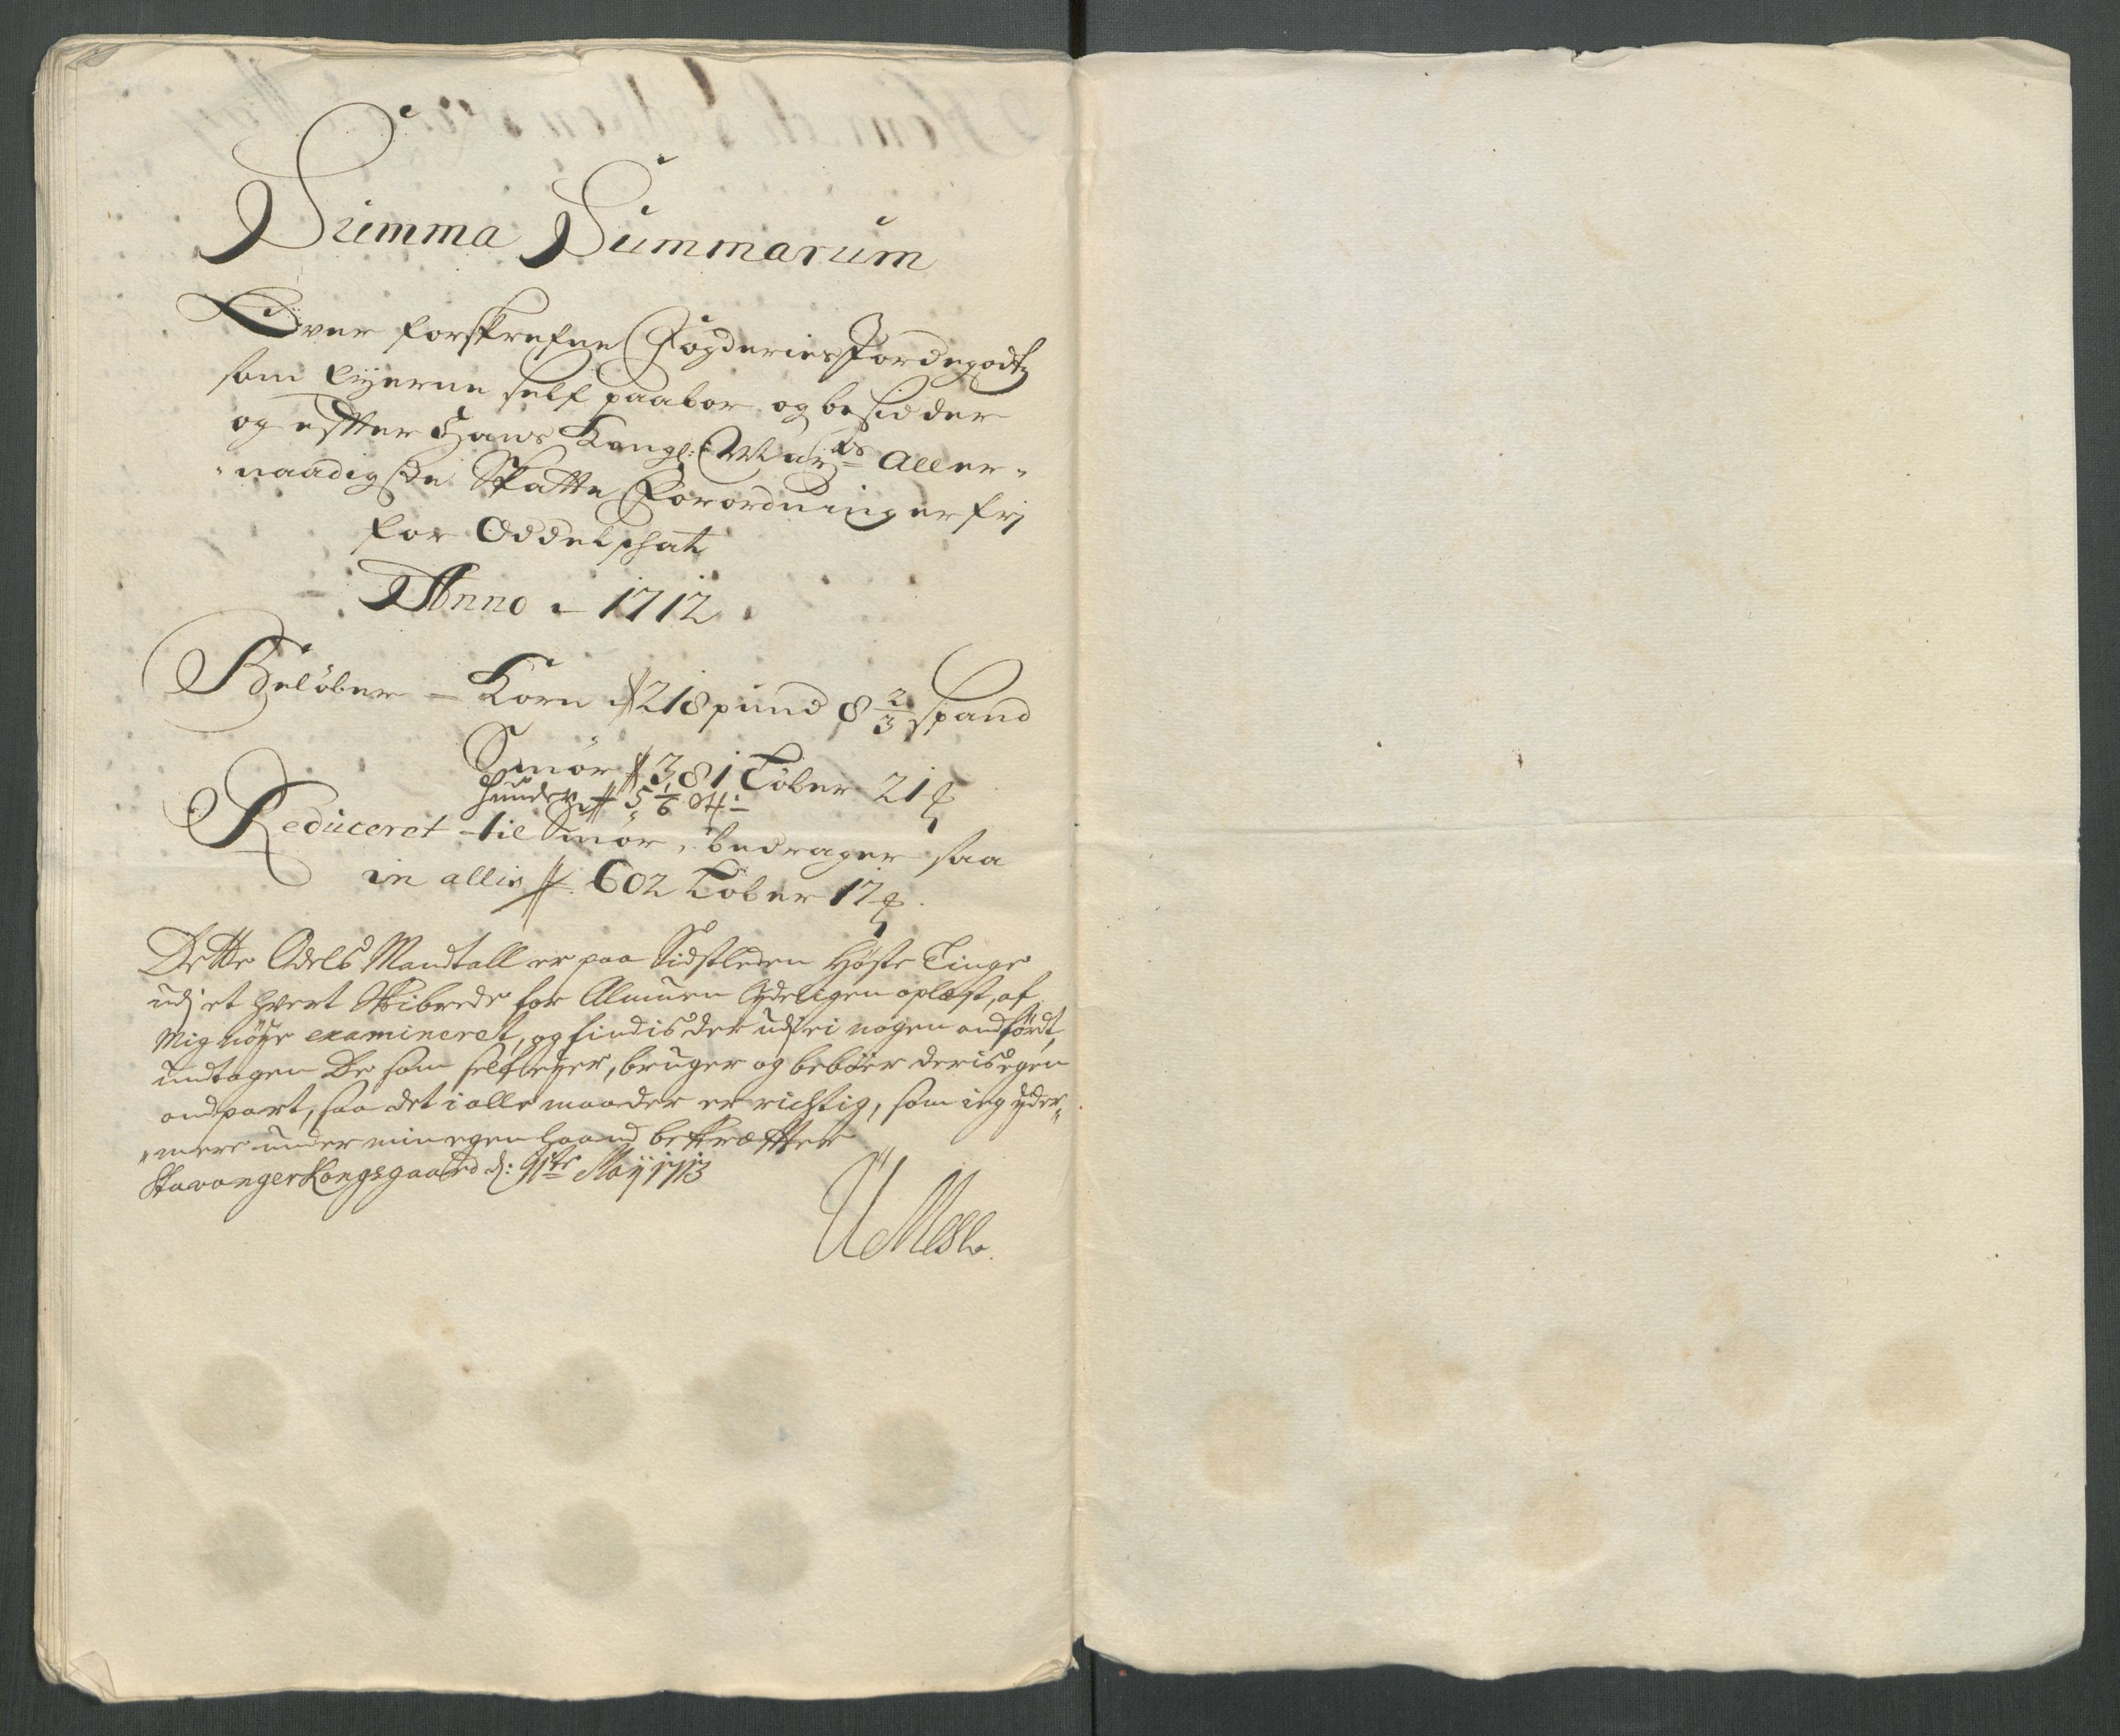 Summa Summarum
Over forskrefne Fogderies Jordegodtz
som Eyerne self paaboer og besidder
og effter Hans Kongl: May:ts Aller-
naadigste Skatte Forordninger frj
for Oddelschatt
Anno - 1712
Beløber - Korn # 218 pund 8 2/3 spand
Smør # 381 Løber 21 ℔
Huuder # 5 1/6
Reduceret til Smør, bedrager saa
in allis # 602 Løber 17 ℔
Dette Odels Mandtall er paa Sidstleden Høste Tinge
udj et hvert Skibrede for Almuen Lydeligen oplæst, af
Mig nøye examineret, og findis der udj ei nogen andførdt,
undtagen De som self eyer, bruger og beboer deris egen
andpart, saa det i alle maader er richtig, som ieg yder-
mere under min egen Haand bekræffter
Stavanger Kongsgaard d: 1te Maij 1713